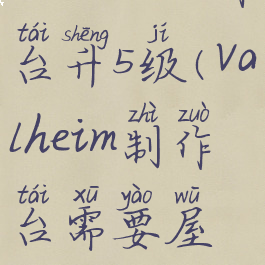 tái shēng jí
台升5级(Va
zhì zuò
lheim制作
tái xū yào wū
台需要屋